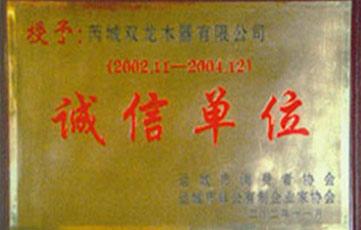 授予:芮城双龙木器有限公司
(2002.11—2004.12)
诚信单位
运城市消费者协会
运城市非公有制企业家协会
二〇〇二年十一月